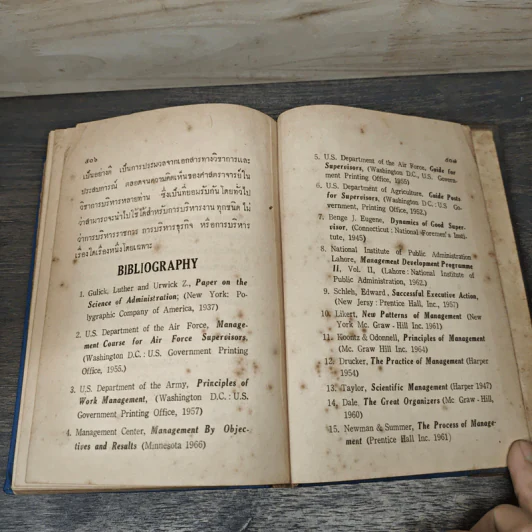 ๕๐๖
เป็นอย่างดี เป็นการประมวลจากเอกสารทางวิชาการและ
ประสบการณ์ ตลอดจนความคิดเห็นของศาสตราจารย์ใน
วิชาการบริหารหลายท่าน ซึ่งเป็นที่ยอมรับกันโดยทั่วไป
ว่าสามารถจะนำไปใช้ได้สำหรับการบริหารงานทุกชนิด ไม่
ว่าการบริหารราชการ การบริหารธุรกิจ หรือการบริหาร
เรื่องใดเรื่องหนึ่งโดยเฉพาะ
BIBLIOGRAPHY
1. Gulick, Luther and Urwick Z., Paper on the
Science of Administration; (New York: Po-
lygraphic Company of America, 1937)
2. U.S. Department of the Air Force, Manage-
ment Course for Air Force Supervisors,
(Washington D.C.: U.S. Government Printing
Office, 1955.)
3. U.S. Department of the Army, Principles of
Work Management, (Washington D.C.: U.S.
Government Printing Office, 1957)
4. Management Center, Management By Objec-
tives and Results (Minnesota 1966)
๕๐๗
5. U.S. Department of the Air Force, Guide for
Supervisors, (Washington D.C., U.S. Govern-
ment Printing Office, 1955)
6. U.S. Department of Agriculture, Guide Posts
for Supervisors, (Washington D.C.: U.S Go-
vernment, Printing Office, 1952.)
7. Benge J. Eugene, Dynamics of Good Super-
visor, (Connecticut: National Foremen's Insti-
tute, 1945)
8. National Institute of Public Administration
Lahore, Management Development Programme
II, Vol. II, (Lahore: National Institute of
Public Administration, 1962.)
9. Schleh, Edward, Successful Executive Action,
(New Jersy: Prentice Hall, Inc., 1957)
10. Likert, New Patterns of Management (New
York Mc. Graw - Hill Inc. 1961)
11. Koontz & Odonnell, Principles of Management
(Mc. Graw Hill Inc. 1964)
12. Drucker, The Practice of Management (Harper
1954)
13. Taylor, Scientific Management (Harper 1947)
14. Dale, The Great Organizers (Mc Graw - Hill,
1960)
15. Newman & Summer, The Process of Manage-
ment (Prentice Hall Inc. 1961)